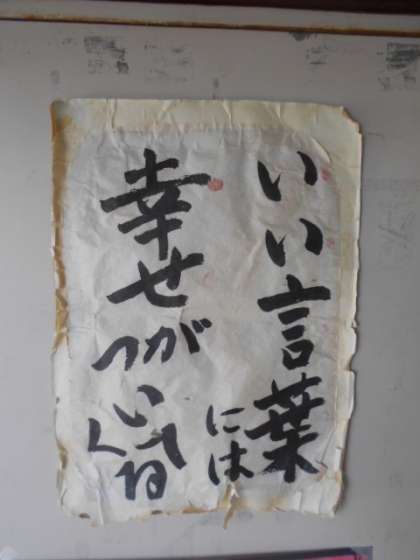 いい言葉には
幸せがついてくね